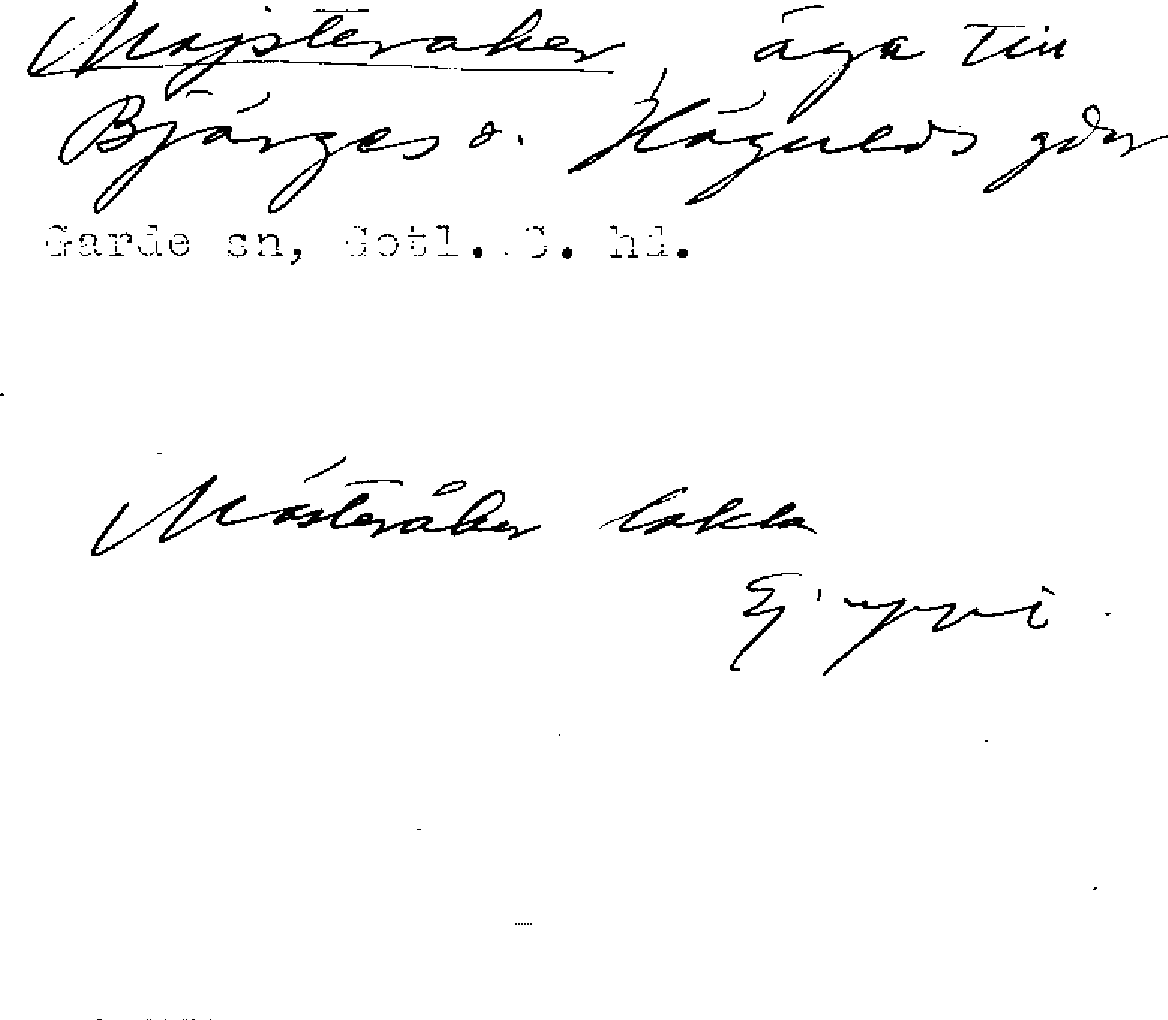 Majsteraker, äga till
Bjärges o. Hägvalds gdr
Garde sn, Gotl. S. hd.
Mästeråker
Ej uppt